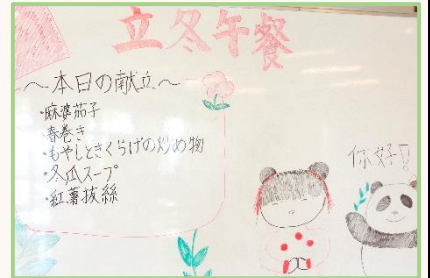 立冬午餐
～本日の献立～
・麻婆茄子
・春巻き
・もやしときくらげの炒め物
・冬瓜スープ
・紅薯抜絲
你好!!